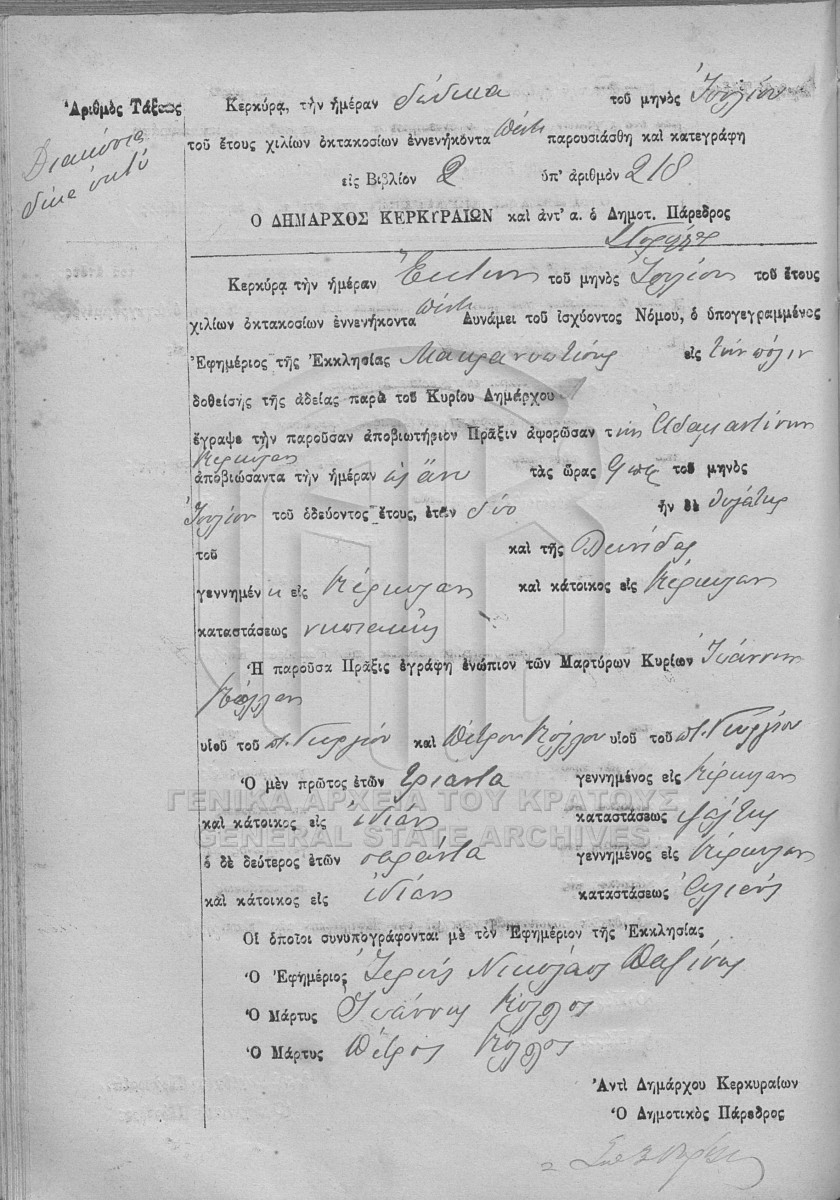 Ἀριθμὸς Τάξεως
Διακόσια
δέκα ὀκτὼ
Κερκύρᾳ, τὴν ἡμέραν δώδεκα τοῦ μηνὸς Ἰουλίου
τοῦ ἔτους χιλίων ὀκτακοσίων ἐννενήκοντα πέντε παρουσιάσθη καὶ κατεγράφη
εἰς Βιβλίον 2 ὑπ' ἀριθμὸν 218
Ο ΔΗΜΑΡΧΟΣ ΚΕΡΚΥΡΑΙΩΝ καὶ ἀντ' α. ὁ Δημοτ. Πάρεδρος
Κερκύρᾳ τὴν ἡμέραν Ἕκτην τοῦ μηνὸς Ἰουλίου τοῦ ἔτους
χιλίων ὀκτακοσίων ἐννενήκοντα πέντε Δυνάμει τοῦ ἰσχύοντος Νόμου, ὁ ὑπογεγραμμένος
Ἐφημέριος τῆς Ἐκκλησίας εἰς τὴν πόλιν
δοθείσης τῆς ἀδείας παρὰ τοῦ Κυρίου Δημάρχου
ἔγραψε τὴν παροῦσαν ἀποβιωτήριον Πρᾶξιν ἀφορῶσαν τὴν Ἀδαμαντίνην
Κέρκυραν
ἀποβιώσαντα τὴν ἡμέραν τὰς ὥρας 9 τοῦ μηνὸς
Ἰουλίου τοῦ ὁδεύοντος ἔτους, ἐτῶν δύο ἦν δὲ θυγάτηρ
τοῦ καὶ τῆς
γεννημέν η εἰς Κέρκυραν καὶ κάτοικος εἰς Κέρκυραν
καταστάσεως νηπιακῆς
Ἡ παροῦσα Πρᾶξις ἐγράφη ἐνώπιον τῶν Μαρτύρων Κυρίων Ἰωάννου
Κόλλα
υἱοῦ τοῦ π. Γεωργίου καὶ Πέτρου Κόλλου υἱοῦ τοῦ π. Γεωργίου
Ὁ μὲν πρῶτος ἐτῶν τριάντα γεννημένος εἰς Κέρκυραν
καὶ κάτοικος εἰς ἰδίαν καταστάσεως ψάλτης
ὁ δὲ δεύτερος ἐτῶν σαράντα γεννημένος εἰς Κέρκυραν
καὶ κάτοικος εἰς ἰδίαν καταστάσεως
Οἱ ὁποῖοι συνυπογράφονται μὲ τὸν Ἐφημέριον τῆς Ἐκκλησίας
Ὁ Ἐφημέριος, Ἱερεὺς Νικόλαος
Ὁ Μάρτυς Ἰωάννης Κόλλας
Ὁ Μάρτυς Πέτρος Κόλλας
Ἀντὶ Δημάρχου Κερκυραίων
Ὁ Δημοτικὸς Πάρεδρος
ΓΕΝΙΚΑ ΑΡΧΕΙΑ ΤΟΥ ΚΡΑΤΟΥΣ
GENERAL STATE ARCHIVES